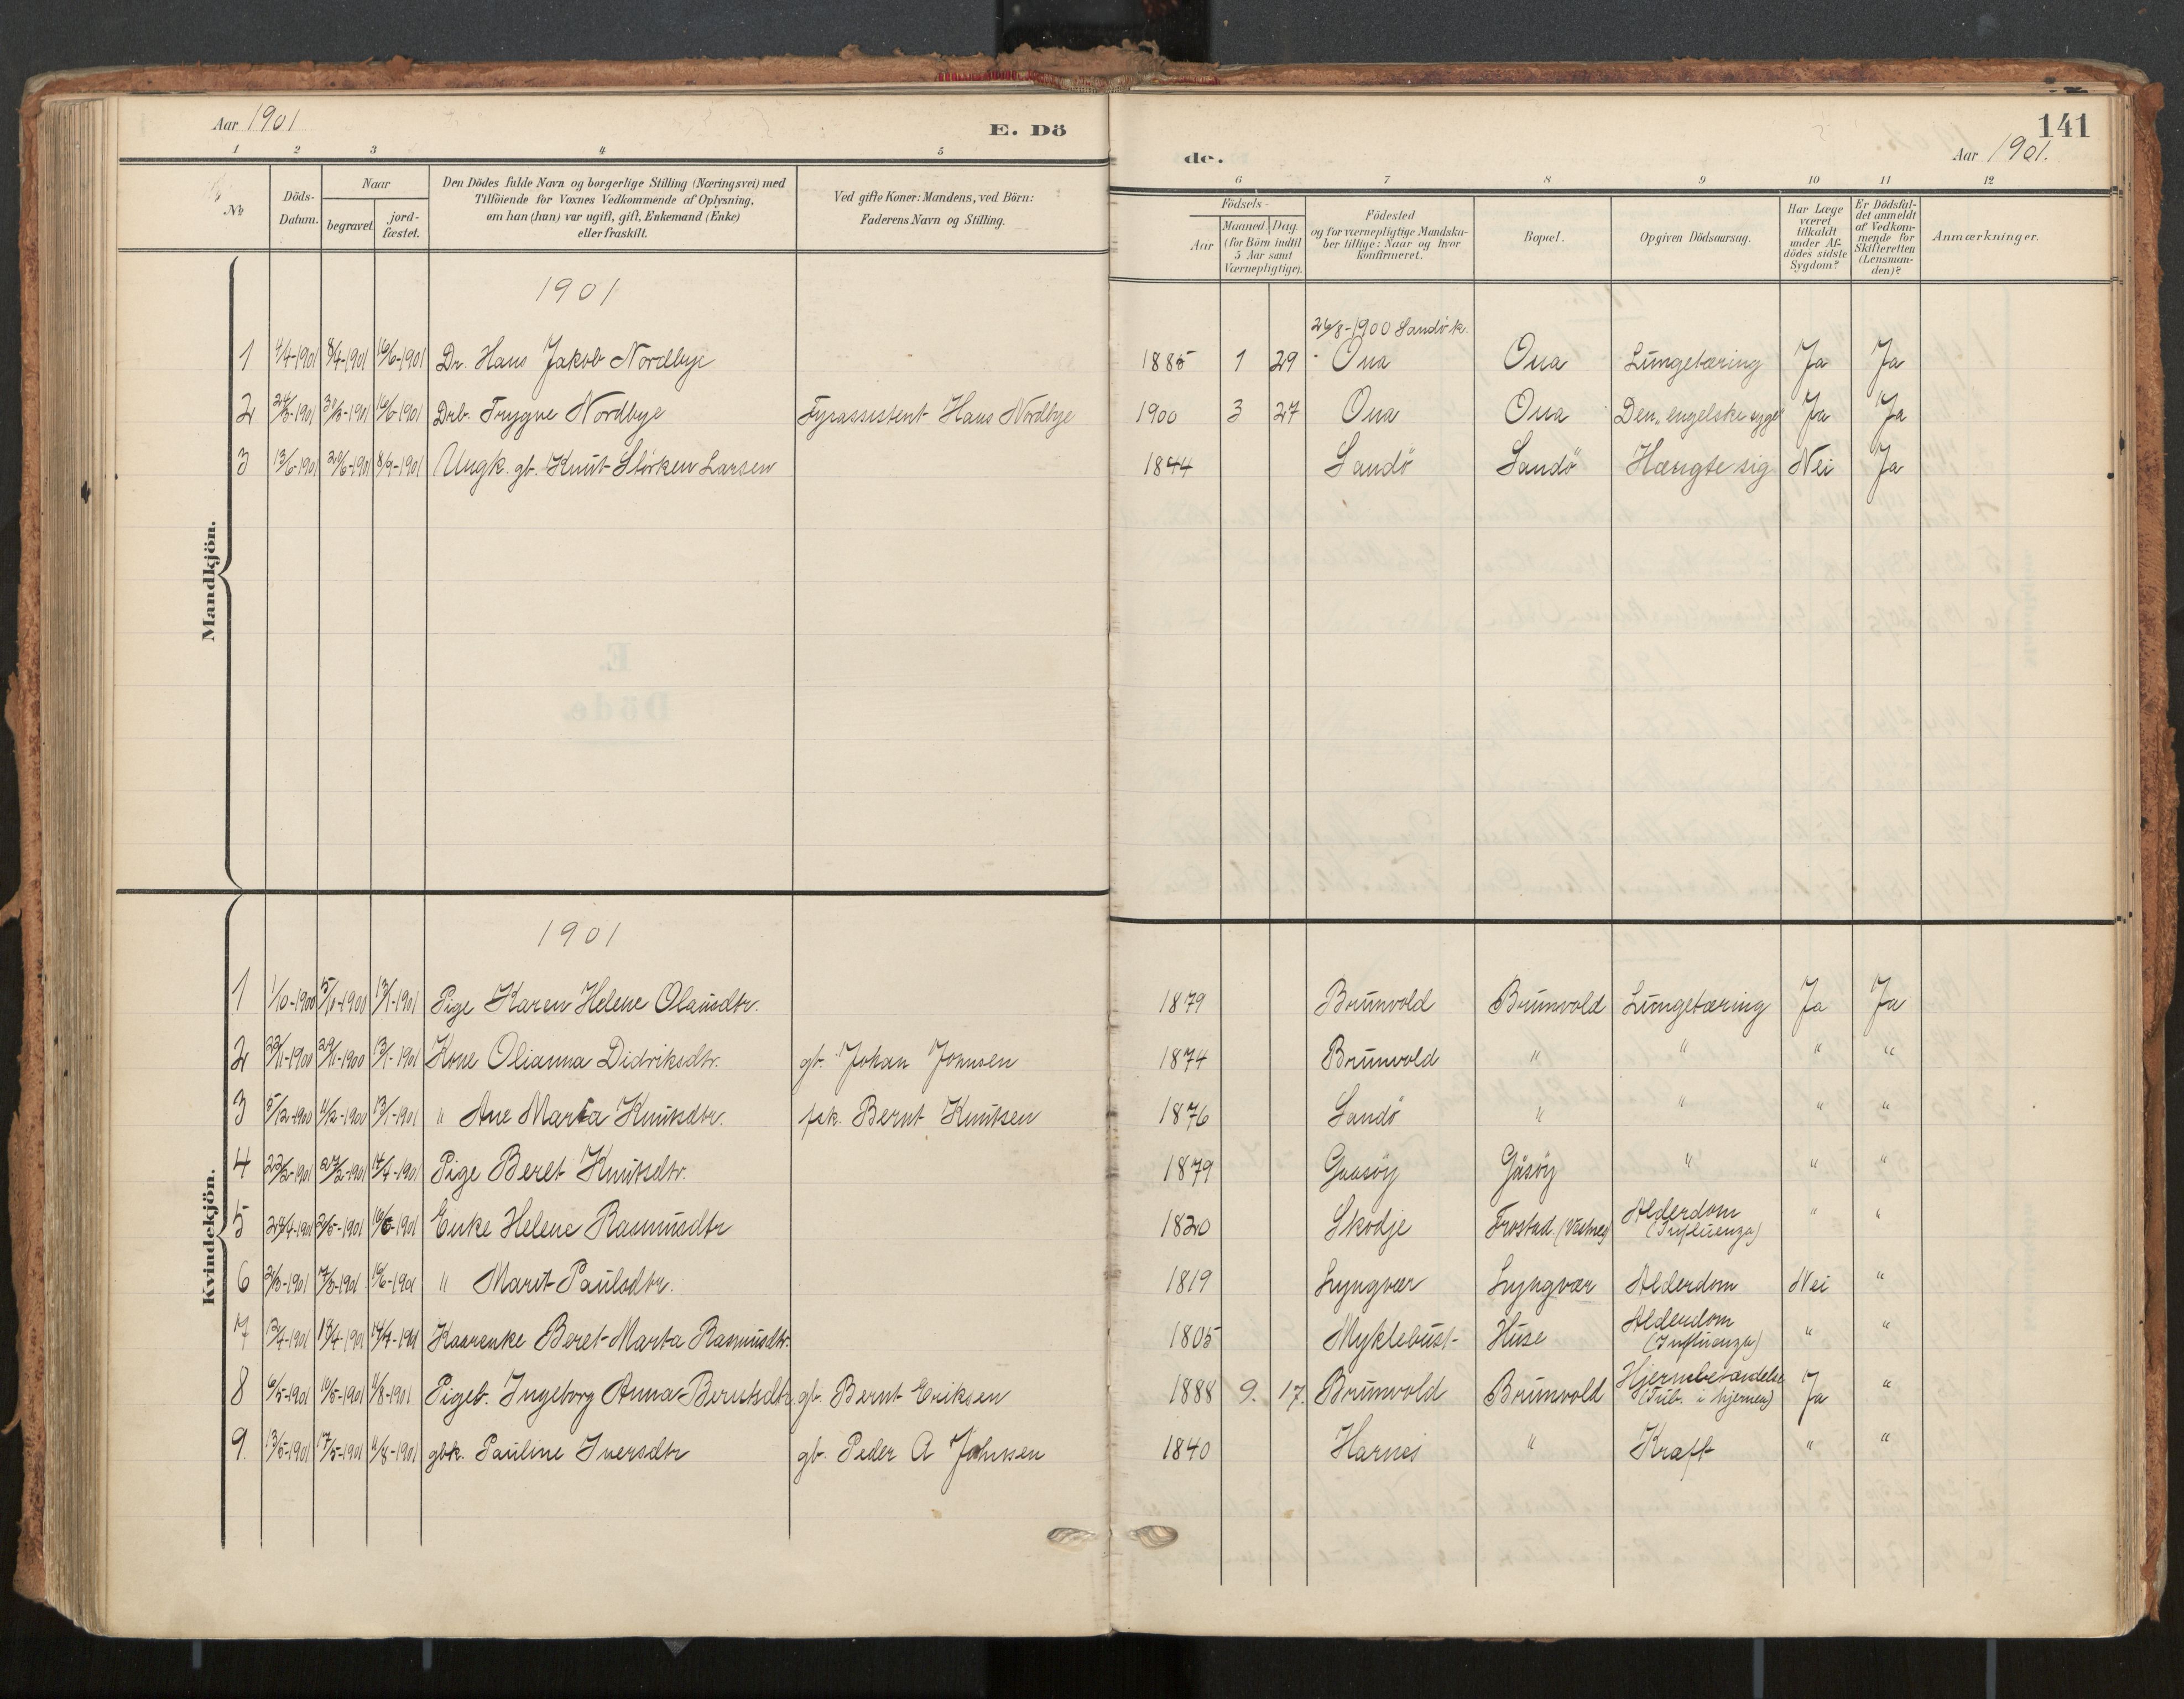 Aar 1901
E. Dö
de.
141
Aar 1901.
1 2 3 4 5 6 7 8 9 10 11 12
No
Döds-Datum.
Naar
begravet.
jordfæstet.
Den Dödes fulde Navn og borgerlige Stilling (Næringsvei) med
Tilföiende for Voxnes Vedkommende af Oplysning,
om han (hun) var ugift, gift, Enkemand (Enke)
eller fraskilt.
Ved gifte Koner: Mandens, ved Börn:
Faderens Navn og Stilling.
Födsels-
Aar
Maaned. Dag.
(for Börn indtil
5 Aar samt
Værnepligtige).
Födested
og for værnepligtige Mandska-
ber tillige: Naar og hvor
konfirmeret.
Bopæl.
Opgiven Dödsaarsag.
Har Læge
været
tilkaldt
under Af-
dödes sidste
Sygdom?
Er Dödsfal-
det anmeldt
af Vedkom-
mende for
Skifteretten
(Lensman-
den)?
Anmærkninger.
Mandkjön.
1901
26/8-1900 Sandö k.
1 4/4-1901 8/4-1901 16/6-1901 Dr. Hans Jakob Nordbye 1885 1 29 Ona Ona Lungetæring Ja Ja
2 24/3-1901 31/3-1901 16/6-1901 Drb. Trygve Nordbye Fyrassistent Hans Nordbye 1900 3 27 Ona Ona Den "engelske syge" Ja Ja
3 13/6-1901 20/6-1901 8/9-1901 Ungk. gb. Knut Störken Larsen 1844 Sandö Sandö Hængte sig Nei Ja
Kvindekjön.
1901
1 1/10-1900 5/10-1900 13/1-1901 Pige Karen Helene Olausdtr. 1879 Brunvold Brunvold Lungetæring Ja Ja
2 22/11-1900 29/11-1900 13/1-1901 Kone Olianna Didriksdtr. gb. Johan Johnsen 1874 Brunvold " " " "
3 5/12-1900 11/12-1900 13/1-1901 " Ane Marta Knutsdtr. fsk. Bernt Knutsen 1876 Sandö " " " "
4 22/2-1901 27/2-1901 14/4-1901 Pige Beret Knutsdtr. 1879 Gaasöy Gåsöy " " "
5 28/4-1901 2/5-1901 16/6-1901 Enke Helene Rasmusdtr 1820 Skodje Frostad (Vestnes) Alderdom (Influenza) " "
6 2/3-1901 7/3-1901 16/6-1901 " Marit Paulsdtr. 1819 Lyngvær Lyngvær Alderdom Nei "
7 13/4-1901 19/4-1901 14/7-1901 Kaarenke Beret Marta Rasmusdtr. 1805 Myklebust Huse Alderdom (Influenza) " "
8 6/5-1901 10/5-1901 11/8-1901 Pigeb. Ingeborg Anna Berntsdtr. gb. Bernt Eriksen 1888 9. 17. Brunvold Brunvold Hjernebetændelse (Tub. i hjernen) Ja "
9. 13/5-1901 17/5-1901 11/8-1901 gbk. Pauline Iversdtr gb. Peder A Johnsen 1840 Harnes " Kræft " "